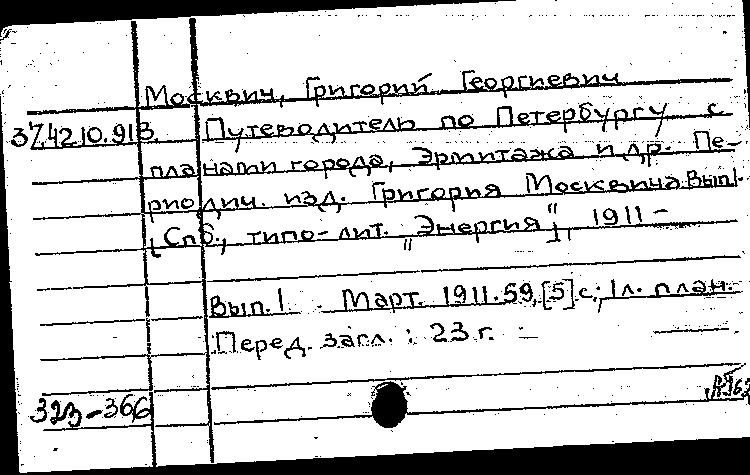 Москвич, Григорий Георгиевич
37.42.10.913. Путеводитель по Петербургу с
планами города, Эрмитажа и др. Пе-
риодич. изд. Григория Москвича. Вып. 1.
[Спб., типо-лит. "Энергия"], 1911 –
Вып. 1. Март. 1911. 59, [5] с.; 1 л. план.
Перед. загл.: 23 г.
323-366